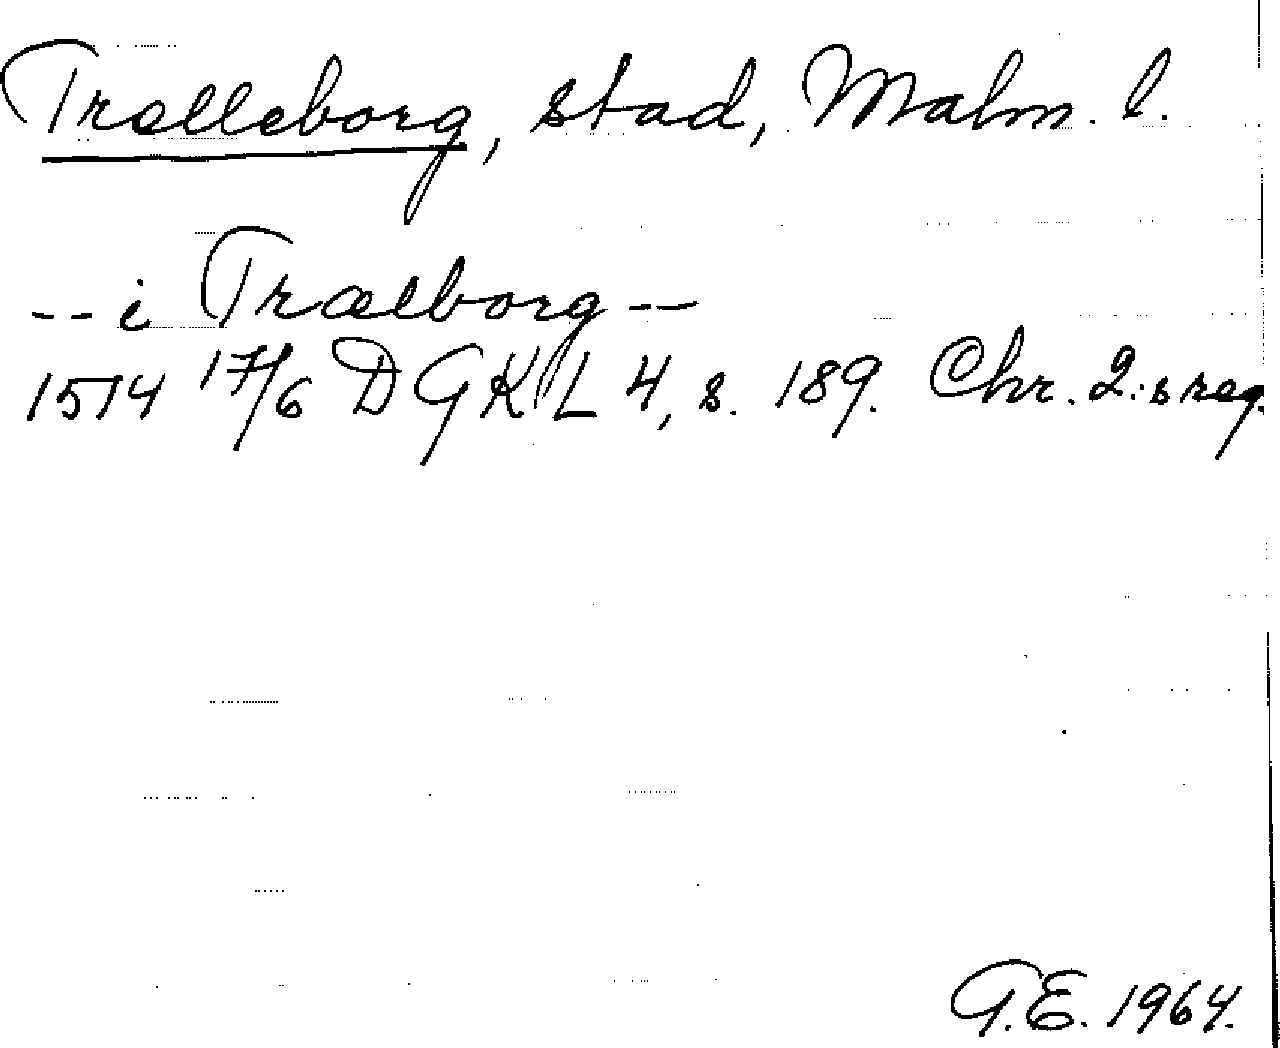 Trelleborg, stad, Malm. l.
-- i Trælborg --
1514 17/6 DGKL 4, s. 189. Chr. 2:s reg.
G.E. 1964.